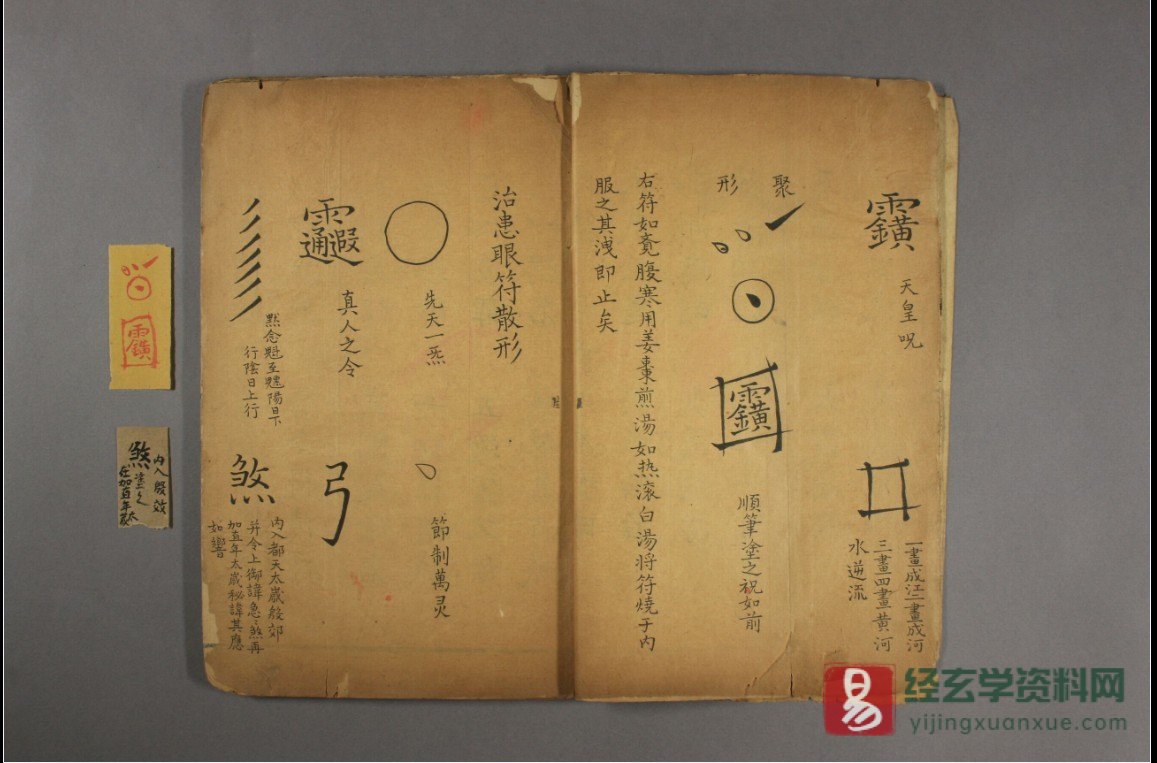 天皇呪
一畫成江二畫成河
三畫四畫黄河
水逆流
聚
形
順筆塗之祝如前
右符如竟腹寒用姜棗煎湯如热滚白湯将符燒于内
服之其洩即止矣
治患眼符散形
先天一炁
節制萬灵
真人之令
弓
默念魁至魒陽日下
行陰日上行
煞
内入都天太歲殷郊
并令上御諱急急煞再
加直年太歲秘諱其應
如響
内入殷效
煞塗之
经玄学资料网
yijingxuanxue.com